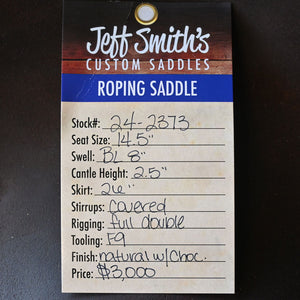 Jeff Smith's
CUSTOM SADDLES
ROPING SADDLE
Stock#: 24-2373
Seat Size: 14.5"
Swell: BL 8"
Cantle Height: 2.5"
Skirt: 26"
Stirrups: covered
Rigging: full double
Tooling: F9
Finish: natural w/choc.
Price: $3,000